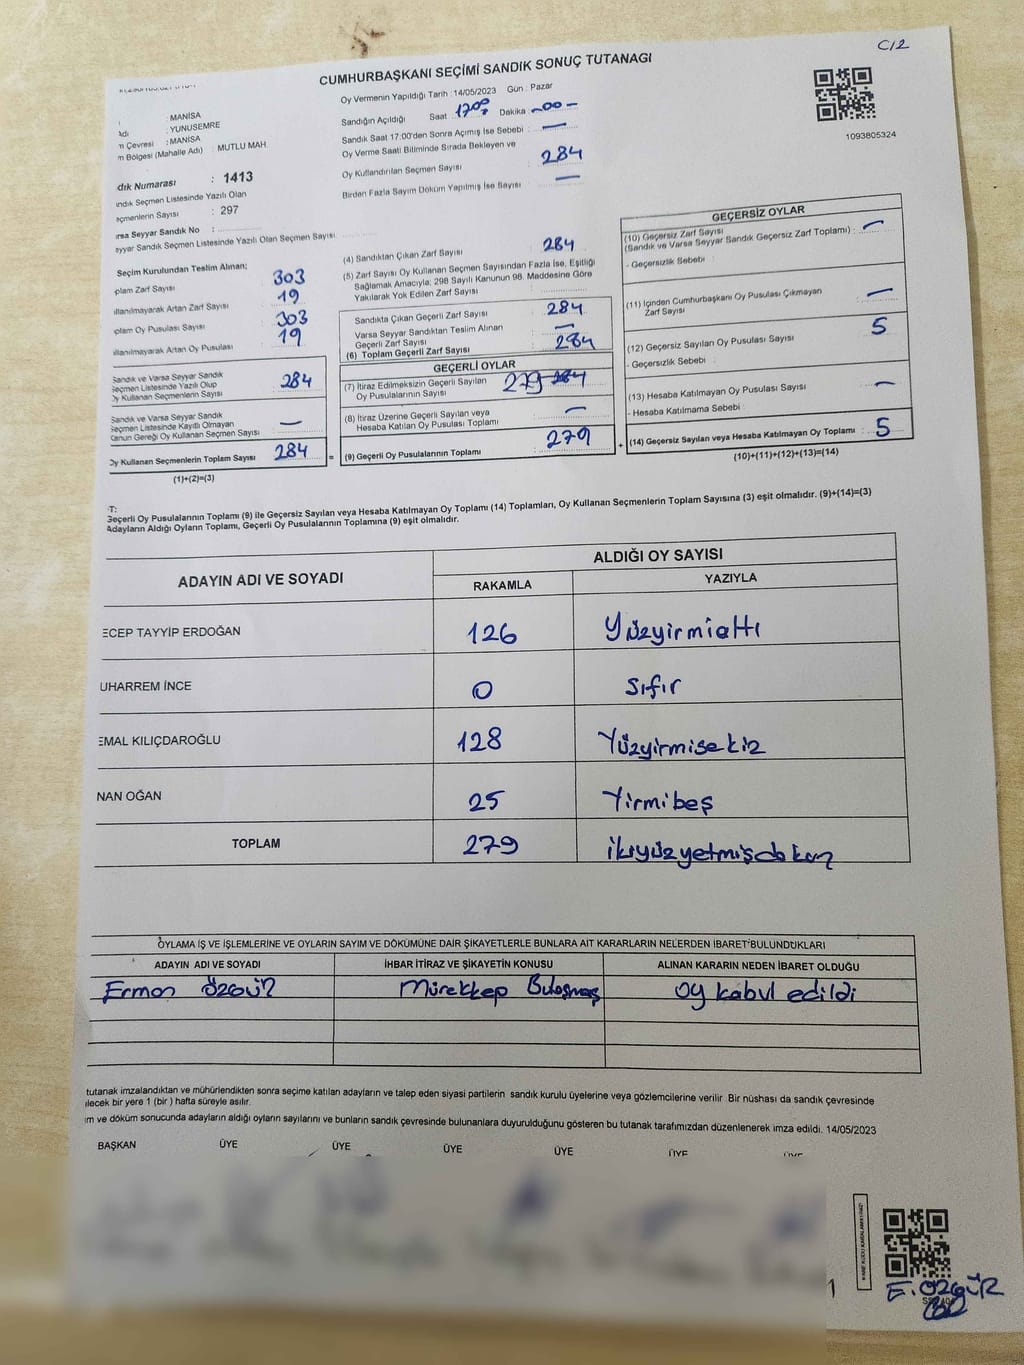 C/2
CUMHURBAŞKANI SEÇİMİ SANDIK SONUÇ TUTANAGI
1093805324
: MANİSA
: YUNUSEMRE
m Çevresi : MANİSA
m Bölgesi (Mahalle Adı) : MUTLU MAH
dık Numarası : 1413
andık Seçmen Listesinde Yazılı Olan
eçmenlerin Sayısı : 297
arsa Seyyar Sandık No :
eyyar Sandık Seçmen Listesinde Yazılı Olan Seçmen Sayısı
Oy Vermenin Yapıldığı Tarih : 14/05/2023 Gün : Pazar
Sandığın Açıldığı Saat 1700 Dakika -00-
Sandık Saat 17:00'den Sonra Açımış İse Sebebi —
Oy Verme Saati Bitiminde Sırada Bekleyen ve
Oy Kullandırılan Seçmen Sayısı 284
Birden Fazla Sayım Döküm Yapılmış İse Sayısı —
Seçim Kurulundan Teslim Alınan;
plam Zarf Sayısı 303
ullanılmayarak Artan Zarf Sayısı 19
oplam Oy Pusulası Sayısı 303
ullanılmayarak Artan Oy Pusulası 19
Sandık ve Varsa Seyyar Sandık
Seçmen Listesinde Yazılı Olup
Oy Kullanan Seçmenlerin Sayısı 284
Sandık ve Varsa Seyyar Sandık
Seçmen Listesinde Kayıtlı Olmayan
Kanun Gereği Oy Kullanan Seçmen Sayısı —
Oy Kullanan Seçmenlerin Toplam Sayısı 284 =
(1)+(2)=(3)
(4) Sandıktan Çıkan Zarf Sayısı 284
(5) Zarf Sayısı Oy Kullanan Seçmen Sayısından Fazla İse, Eşitliği
Sağlamak Amacıyla; 298 Sayılı Kanunun 98. Maddesine Göre
Yakılarak Yok Edilen Zarf Sayısı :
Sandıkta Çıkan Geçerli Zarf Sayısı 284
Varsa Seyyar Sandıktan Teslim Alınan
Geçerli Zarf Sayısı —
(6) Toplam Geçerli Zarf Sayısı 284
GEÇERLİ OYLAR
(7) İtiraz Edilmeksizin Geçerli Sayılan
Oy Pusulalarının Sayısı 279 284
(8) İtiraz Üzerine Geçerli Sayılan veya
Hesaba Katılan Oy Pusulası Toplamı —
(9) Geçerli Oy Pusulalarının Toplamı 279 +
GEÇERSİZ OYLAR
(10) Geçersiz Zarf Sayısı
(Sandık ve Varsa Seyyar Sandık Geçersiz Zarf Toplamı) : —
- Geçersizlik Sebebi :
(11) İçinden Cumhurbaşkanı Oy Pusulası Çıkmayan
Zarf Sayısı —
(12) Geçersiz Sayılan Oy Pusulası Sayısı 5
- Geçersizlik Sebebi :
(13) Hesaba Katılmayan Oy Pusulası Sayısı —
- Hesaba Katılmama Sebebi
(14) Geçersiz Sayılan veya Hesaba Katılmayan Oy Toplamı : 5
(10)+(11)+(12)+(13)=(14)
T:
Geçerli Oy Pusulalarının Toplamı (9) ile Geçersiz Sayılan veya Hesaba Katılmayan Oy Toplamı (14) Toplamları, Oy Kullanan Seçmenlerin Toplam Sayısına (3) eşit olmalıdır. (9)+(14)=(3)
Adayların Aldığı Oyların Toplamı, Geçerli Oy Pusulalarının Toplamına (9) eşit olmalıdır.
ADAYIN ADI VE SOYADI
ALDIĞI OY SAYISI
RAKAMLA YAZIYLA
ECEP TAYYİP ERDOĞAN 126 Yüzyirmialtı
UHARREM İNCE 0 Sıfır
EMAL KILIÇDAROĞLU 128 Yüzyirmisekiz
NAN OĞAN 25 Yirmibeş
TOPLAM 279 ikiyüzyetmişdokuz
OYLAMA İŞ VE İŞLEMLERİNE VE OYLARIN SAYIM VE DÖKÜMÜNE DAİR ŞİKAYETLERLE BUNLARA AİT KARARLARIN NELERDEN İBARET BULUNDUKLARI
ADAYIN ADI VE SOYADI İHBAR İTİRAZ VE ŞİKAYETİN KONUSU ALINAN KARARIN NEDEN İBARET OLDUĞU
Erman ÖZGÜR Mürekkep Bulaşmış oy kabul edildi
tutanak imzalandıktan ve mühürlendikten sonra seçime katılan adayların ve talep eden siyasi partilerin sandık kurulu üyelerine veya gözlemcilerine verilir Bir nüshası da sandık çevresinde
ilecek bir yere 1 (bir ) hafta süreyle asılır.
ım ve döküm sonucunda adayların aldığı oyların sayılarını ve bunların sandık çevresinde bulunanlara duyurulduğunu gösteren bu tutanak tarafımızdan düzenlenerek imza edildi. 14/05/2023
BAŞKAN ÜYE ÜYE ÜYE ÜYE ÜYE ÜYE
E. ÖZGÜR